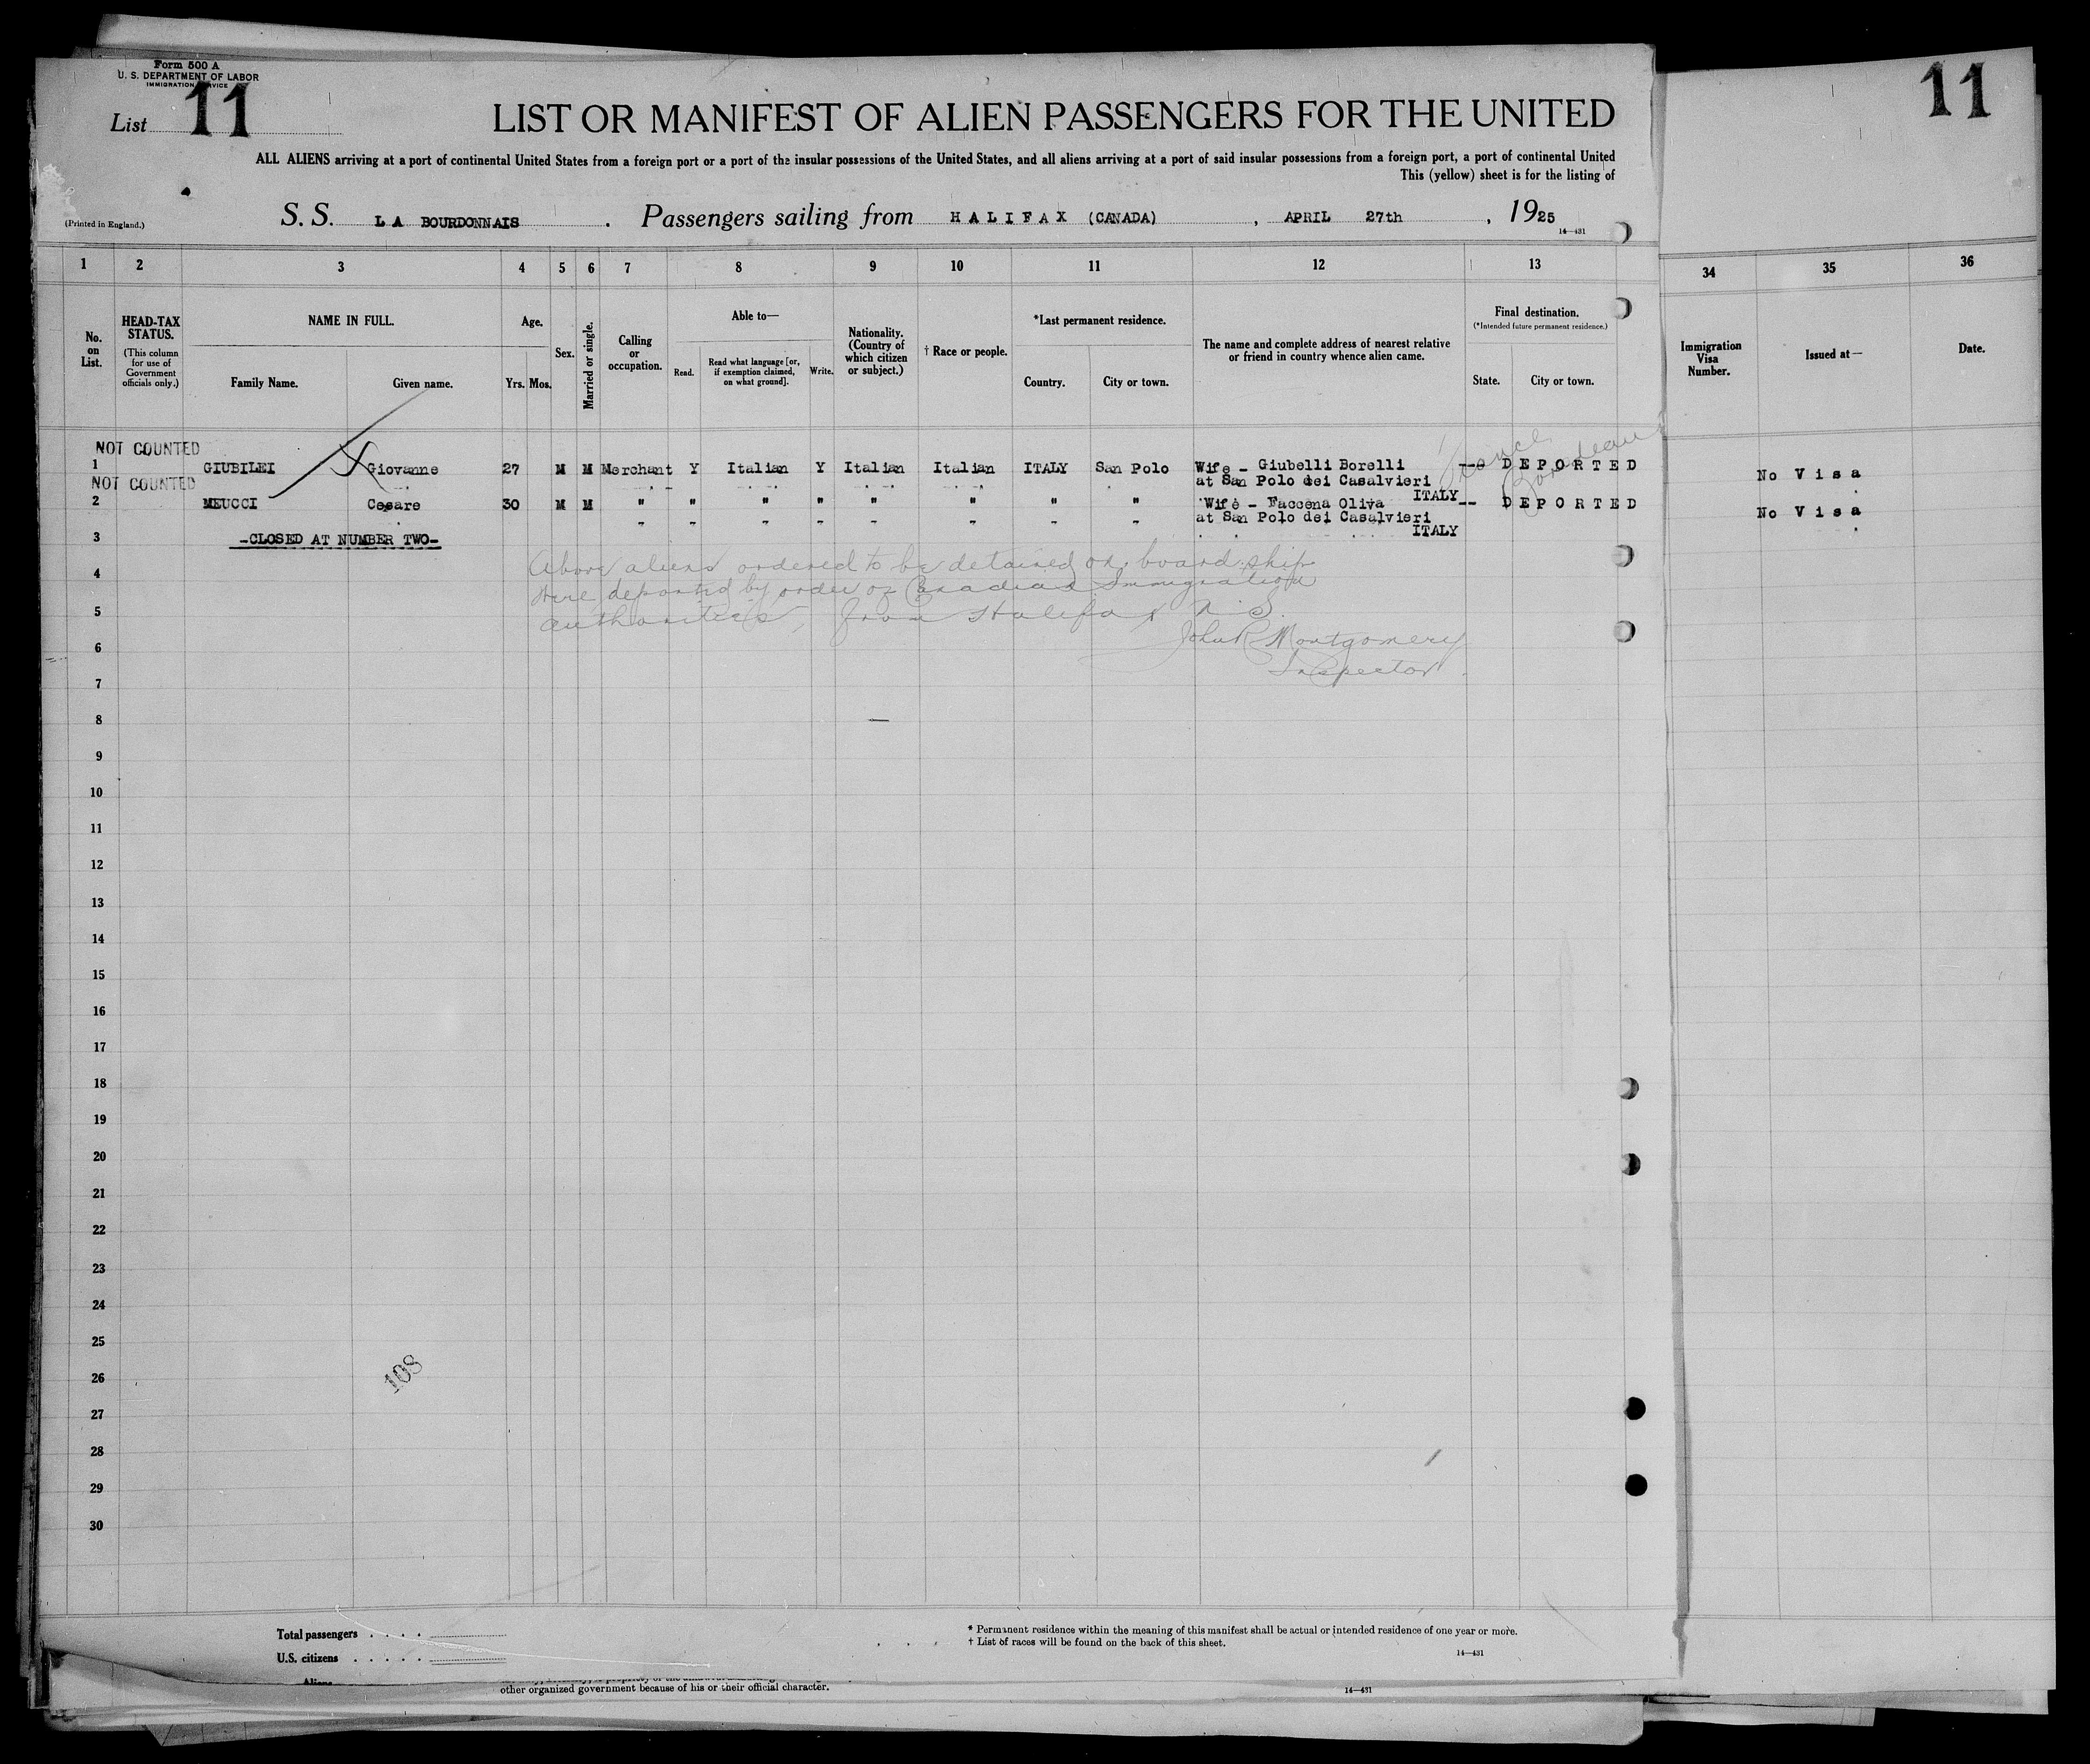 Form 500 A
U. S. DEPARTMENT OF LABOR
IMMIGRATION SERVICE
List 11
11
LIST OR MANIFEST OF ALIEN PASSENGERS FOR THE UNITED
ALL ALIENS arriving at a port of continental United States from a foreign port or a port of the insular possessions of the United States, and all aliens arriving at a port of said insular possessions from a foreign port, a port of continental United
This (yellow) sheet is for the listing of
(Printed in England.)
S. S. LA BOURDONNAIS . Passengers sailing from HALIFAX (CANADA) , APRIL 27th , 1925
14—431
1 2 3 4 5 6 7 8 9 10 11 12 13 34 35 36
No. on List.
HEAD-TAX STATUS.
(This column for use of Government officials only.)
NAME IN FULL.
Family Name. Given name.
Age.
Yrs. Mos.
Sex.
Married or single.
Calling or occupation.
Able to—
Read.
Read what language [or, if exemption claimed, on what ground].
Write.
Nationality. (Country of which citizen or subject.)
† Race or people.
*Last permanent residence.
Country. City or town.
The name and complete address of nearest relative or friend in country whence alien came.
Final destination.
(*Intended future permanent residence.)
State. City or town.
Immigration Visa Number.
Issued at—
Date.
NOT COUNTED
1 GIUBILEI Giovanne 27 M M Merchant Y Italian Y Italian Italian ITALY San Polo Wife - Giubelli Borelli -- DEPORTED No Visa
at San Polo dei Casalvieri
ITALY
France
Bordeaux
NOT COUNTED
2 MEUCCI Cesare 30 M M " " " " " " " " Wife - Faccena Oliva -- DEPORTED No Visa
at San Polo dei Casalvieri
ITALY
3 -CLOSED AT NUMBER TWO-
Above aliens ordered to be detained on board ship
were deported by order of Canadian Immigration
authorities, from Halifax N.S.
John R Montgomery
Inspector
4
5
6
7
8
9
10
11
12
13
14
15
16
17
18
19
20
21
22
23
24
25
26
27
28
29
30
108
Total passengers . . . .
U.S. citizens . . . . .
Aliens
* Permanent residence within the meaning of this manifest shall be actual or intended residence of one year or more.
† List of races will be found on the back of this sheet.
14—431
other organized government because of his or their official character.
14—431